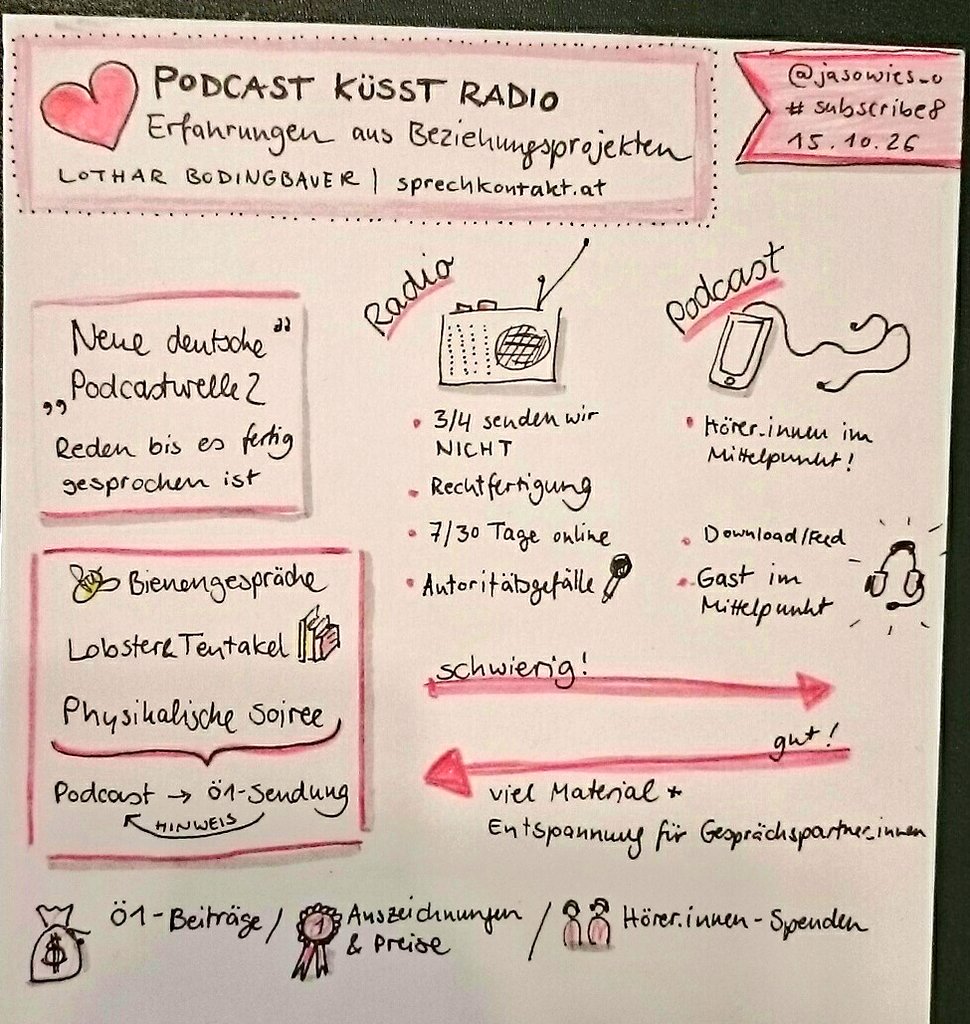 PODCAST KÜSST RADIO
Erfahrungen aus Beziehungsprojekten
LOTHAR BODINGBAUER | sprechkontakt.at
@jasowies_o
# subscribe8
15.10.26
Neue deutsche"
„Podcastwelle2
Reden bis es fertig
gesprochen ist
Bienengespräche
Lobster& Tentakel
Physikalische Soiree
Podcast → Ö1-Sendung
HINWEIS
Radio
• 3/4 senden wir
NICHT
• Rechtfertigung
• 7/30 Tage online
• Autoritätsgefälle
Podcast
• Hörer.innen im
Mittelpunkt!
• Download/Feed
• Gast im
Mittelpunkt
schwierig!
gut!
viel Material +
Entspannung für Gesprächspartner.innen
$ Ö1-Beiträge / 1 Auszeichnungen
& Preise
/ Hörer.innen-Spenden